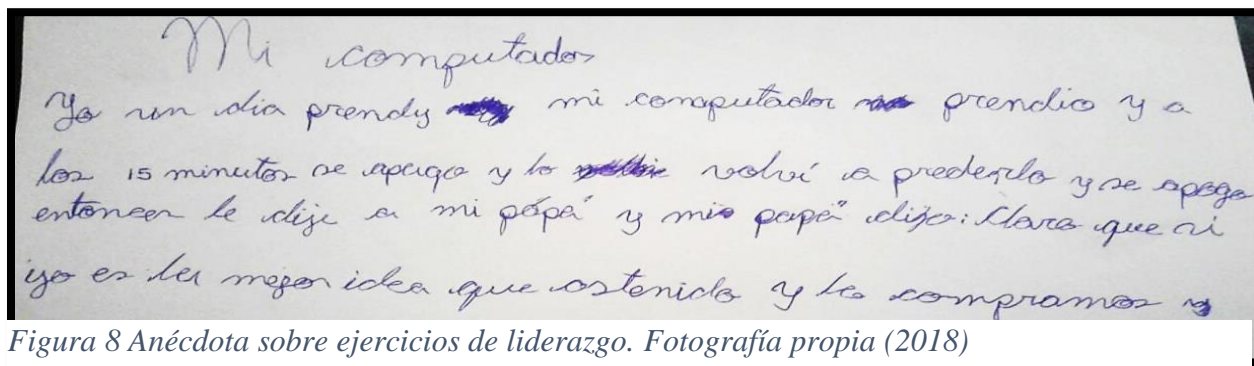 Mi computador
Yo un dia prendy mi computador prendio y a
los 15 minutos se apago y lo volví a prederlo y se apago
entonces le dije a mi pópá y mi papá dijo: Claro que si
ijo es la mejor idea que astenido y lo compramos y
Figura 8 Anécdota sobre ejercicios de liderazgo. Fotografía propia (2018)